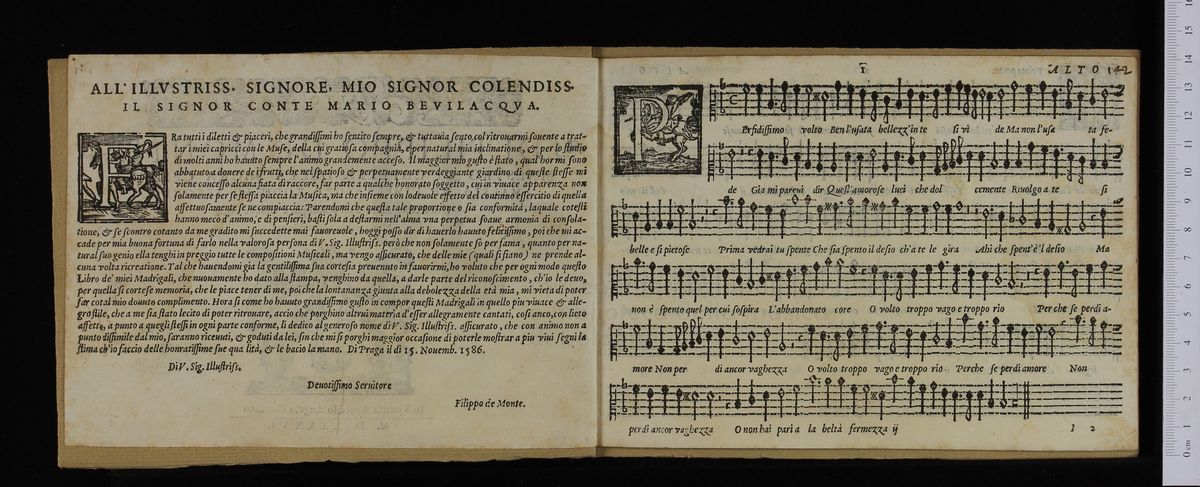 ALL'ILLVSTRISS. SIGNORE, MIO SIGNOR COLENDISS.
IL SIGNOR CONTE MARIO BEVILACQVA.
FRa tutti i diletti & piaceri, che grandissimi ho sentito sempre, & tuttauia sento, col ritrouarmi souente a trat-
tar i miei capricci con le Muse, della cui gratiosa compagnia, e per natural mia inclinatione, & per lo studio
di molti anni ho hauuto sempre l'animo grandemente acceso. Il maggior mio gusto è stato, qual'hor mi sono
abbatuto a douere de i frutti, che nel spatioso & perpetuamente verdeggiante giardino di queste stesse mi
viene concesso alcuna fiata di raccore, far parte a qualche honorato soggetto, cui in viuace apparenza non
solamente per se stessa piaccia la Musica, ma che insieme con lodeuole effetto del continuo essercitio di quella
affettuosamente se ne compiaccia: Parendomi che questa tale proportione o sia conformità, laquale cotesti
hanno meco d'animo, e di pensieri, basti sola a destarmi nell'alma vna perpetua soaue armonia di consola-
tione, & se scontro cotanto da me gradito mi succedette mai fauoreuole, hoggi posso dir di hauerlo hauuto felicissimo, poi che mi ac-
cade per mia buona fortuna di farlo nella valorosa persona di V. Sig. Illustriss. però che non solamente so per fama, quanto per na-
tural suo genio ella tenghi in preggio tutte le compositioni Musicali, ma vengo assicurato, che delle mie (quali si siano) ne prende al-
cuna volta ricreatione. Tal che hauendomi gia la gentilissima sua cortesia preuenuto in fauorirmi, ho voluto che per ogni modo questo
Libro de' miei Madrigali, che nuouamente ho dato alla stampa, venghino da quella, a darle parte del riconoscimento, ch'io le deuo,
per quella si cortese memoria, che le piace tener di me, poi che la lontananza giunta alla debolezza della età mia, mi vieta di poter
far cotal mio douuto complimento. Hora si come ho hauuto grandissimo gusto in compor questi Madrigali in quello piu viuace & alle-
gro stile, che a me sia stato lecito di poter ritrouare, accio che porghino altrui materia d'esser allegramente cantati, cosi anco, con lieto
affetto, a punto a quegli stessi in ogni parte conforme, li dedico al generoso nome di V. Sig. Illustriss. assicurato, che con animo non a
punto dissimile dal mio, saranno riceuuti, & goduti da lei, sin che mi si porghi maggior occasione di poterle mostrar a piu viui segni la
stima ch'io faccio delle honoratissime sue qua lità, & le bacio la mano. Di Praga il dì 15. Nouemb. 1586.
Di V. Sig. Illustriss.
Deuotissimo Seruitore
Filippo de Monte.
1 ALTO 142
PErfidissimo volto Ben l'usata bellezz'in te si vi de Ma non l'usa ta fe-
de Gia mi pareui dir Quest'amorose luci che dol cemente Riuolgo a te si
belle e si pietose Prima vedrai tu spente Che sia spento il desio ch'a te le gira Ahi che spent'è'l desio Ma
non è spento quel per cui sospira L'abbandonato core O volto troppo vago e troppo rio Perche se perdi a-
more Non per di ancor vaghezza O volto troppo vago e troppo rio Perche se perdi amore Non
perdi ancor vaghezza O non hai pari a la beltà fermezza ij
1 2